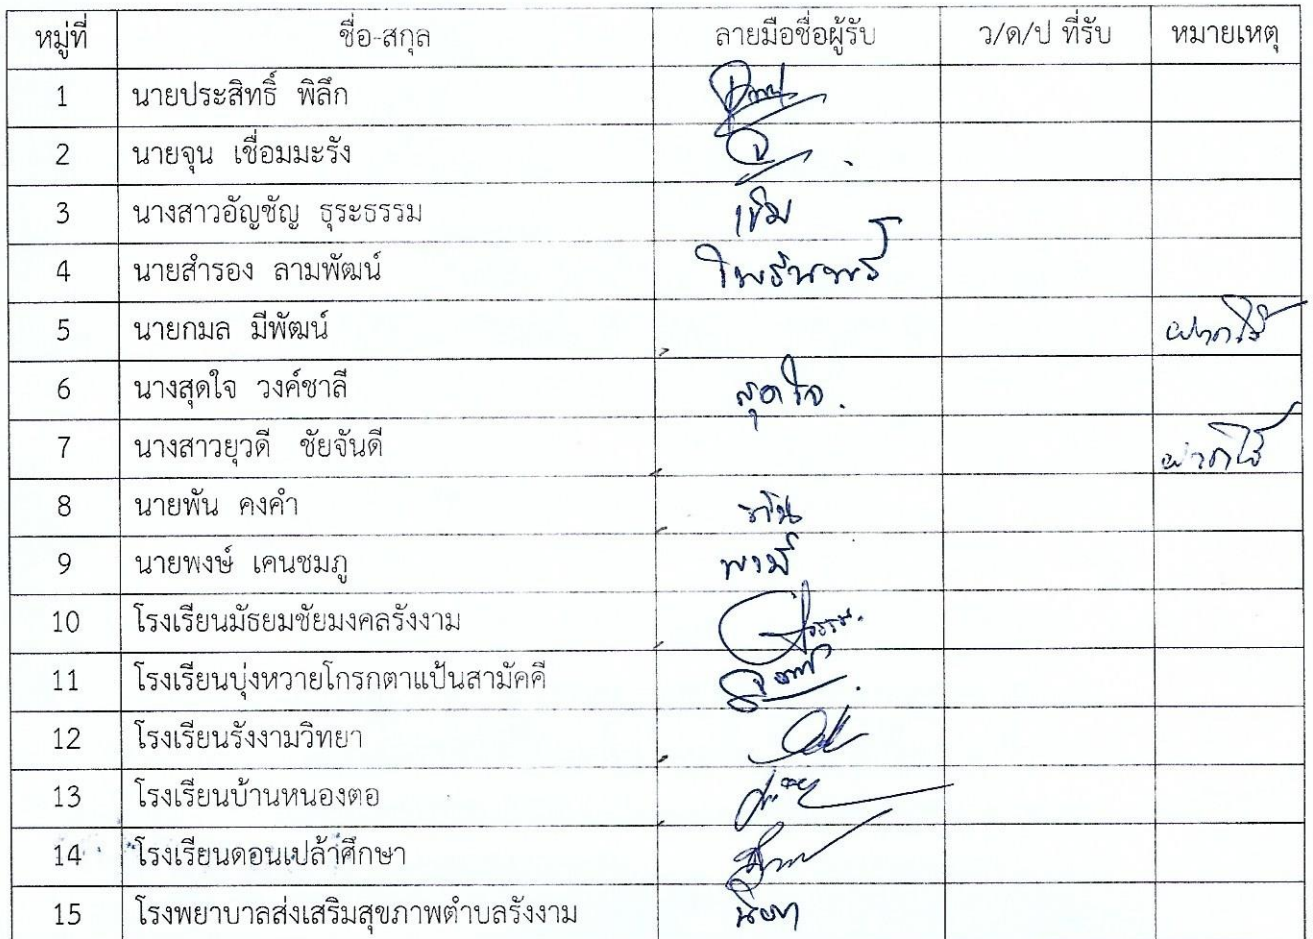 หมู่ที่ ชื่อ-สกุล ลายมือชื่อผู้รับ ว/ด/ป ที่รับ หมายเหตุ
1 นายประสิทธิ์ พิลึก
2 นายจุน เชื่อมมะรัง
3 นางสาวอัญชัญ ธุระธรรม
4 นายสำรอง ลามพัฒน์
5 นายกมล มีพัฒน์
6 นางสุดใจ วงค์ชาลี สุดใจ.
7 นางสาวยุวดี ชัยจันดี
8 นายพัน คงคำ
9 นายพงษ์ เคนชมภู
10 โรงเรียนมัธยมชัยมงคลรังงาม
11 โรงเรียนบุ่งหวายโกรกตาแป้นสามัคคี
12 โรงเรียนรังงามวิทยา
13 โรงเรียนบ้านหนองตอ
14 โรงเรียนดอนเปล้าศึกษา
15 โรงพยาบาลส่งเสริมสุขภาพตำบลรังงาม